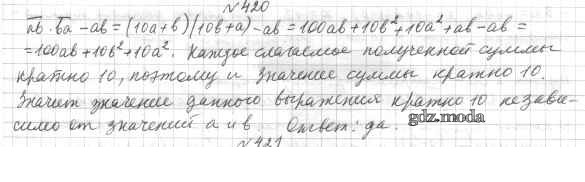 №420
ab · ba - ab = (10a+b)(10b+a) - ab = 100ab + 10b² + 10a² + ab - ab =
= 100ab + 10b² + 10a². Каждое слагаемое полученной суммы
кратно 10, поэтому и значение суммы кратно 10.
Значит значение данного выражения кратно 10 незави-
симо от значений a и b. Ответ: да.
gdz.moda
№421